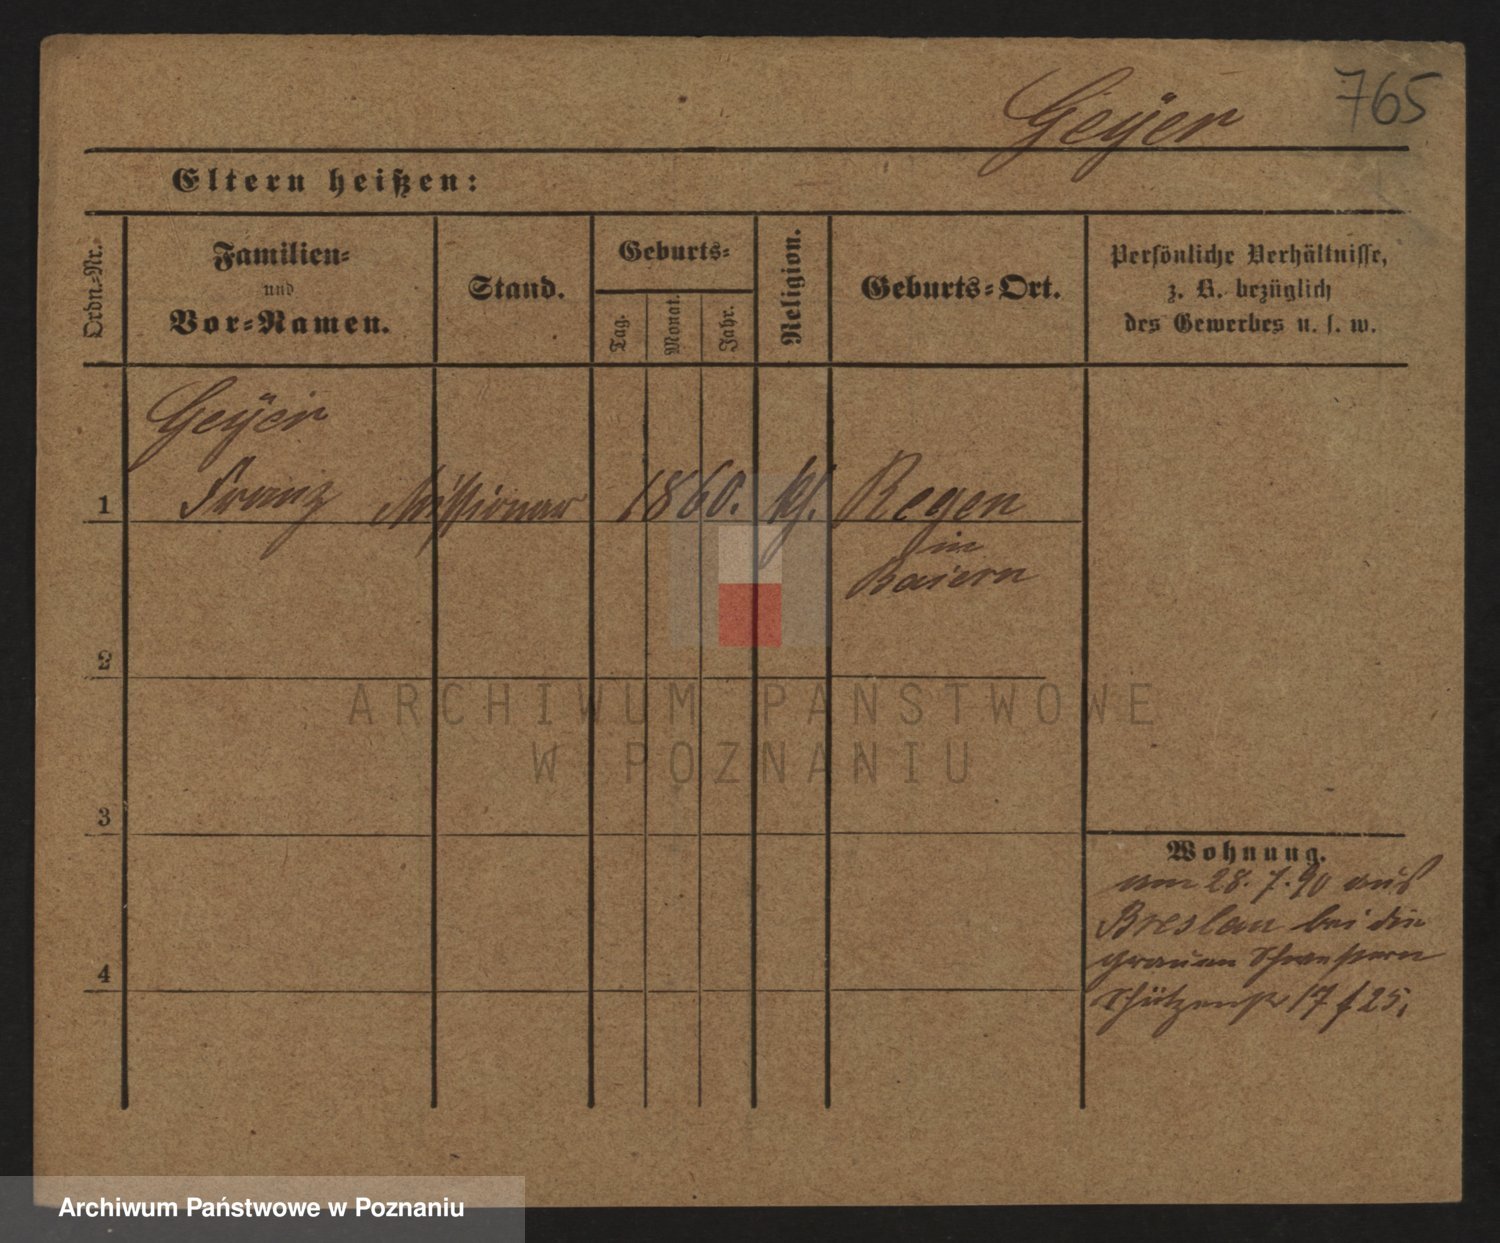 Geÿer
765
Eltern heißen:
Ordn.-Nr.
Familien-
und
Vor-Namen.
Stand.
Geburts-
Tag.
Monat.
Jahr.
Religion.
Geburts-Ort.
Persönliche Verhältnisse,
z. B. bezüglich
des Gewerbes u. s. w.
Geÿer
1 Franz Missionar 1860. kf. Regen
in
Baiern
2
3
4
Wohnung.
am 28.7.90 aus
Breslau bei den
grauen Schwestern
Schützenstr 17 f 25.
ARCHIWUM PAŃSTWOWE
W POZNANIU
Archiwum Państwowe w Poznaniu